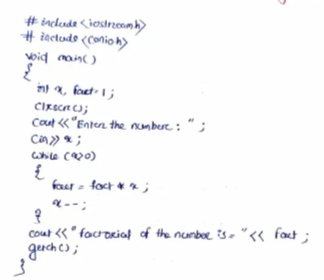 # include <iostream.h>
# include <conio.h>
void main()
{
int x, fact=1;
clrscr();
cout <<"Enter the number : " ;
cin>> x ;
while (x>0)
{
fact = fact * x ;
x-- ;
}
cout <<" factorial of the number is = " << fact ;
getch();
}